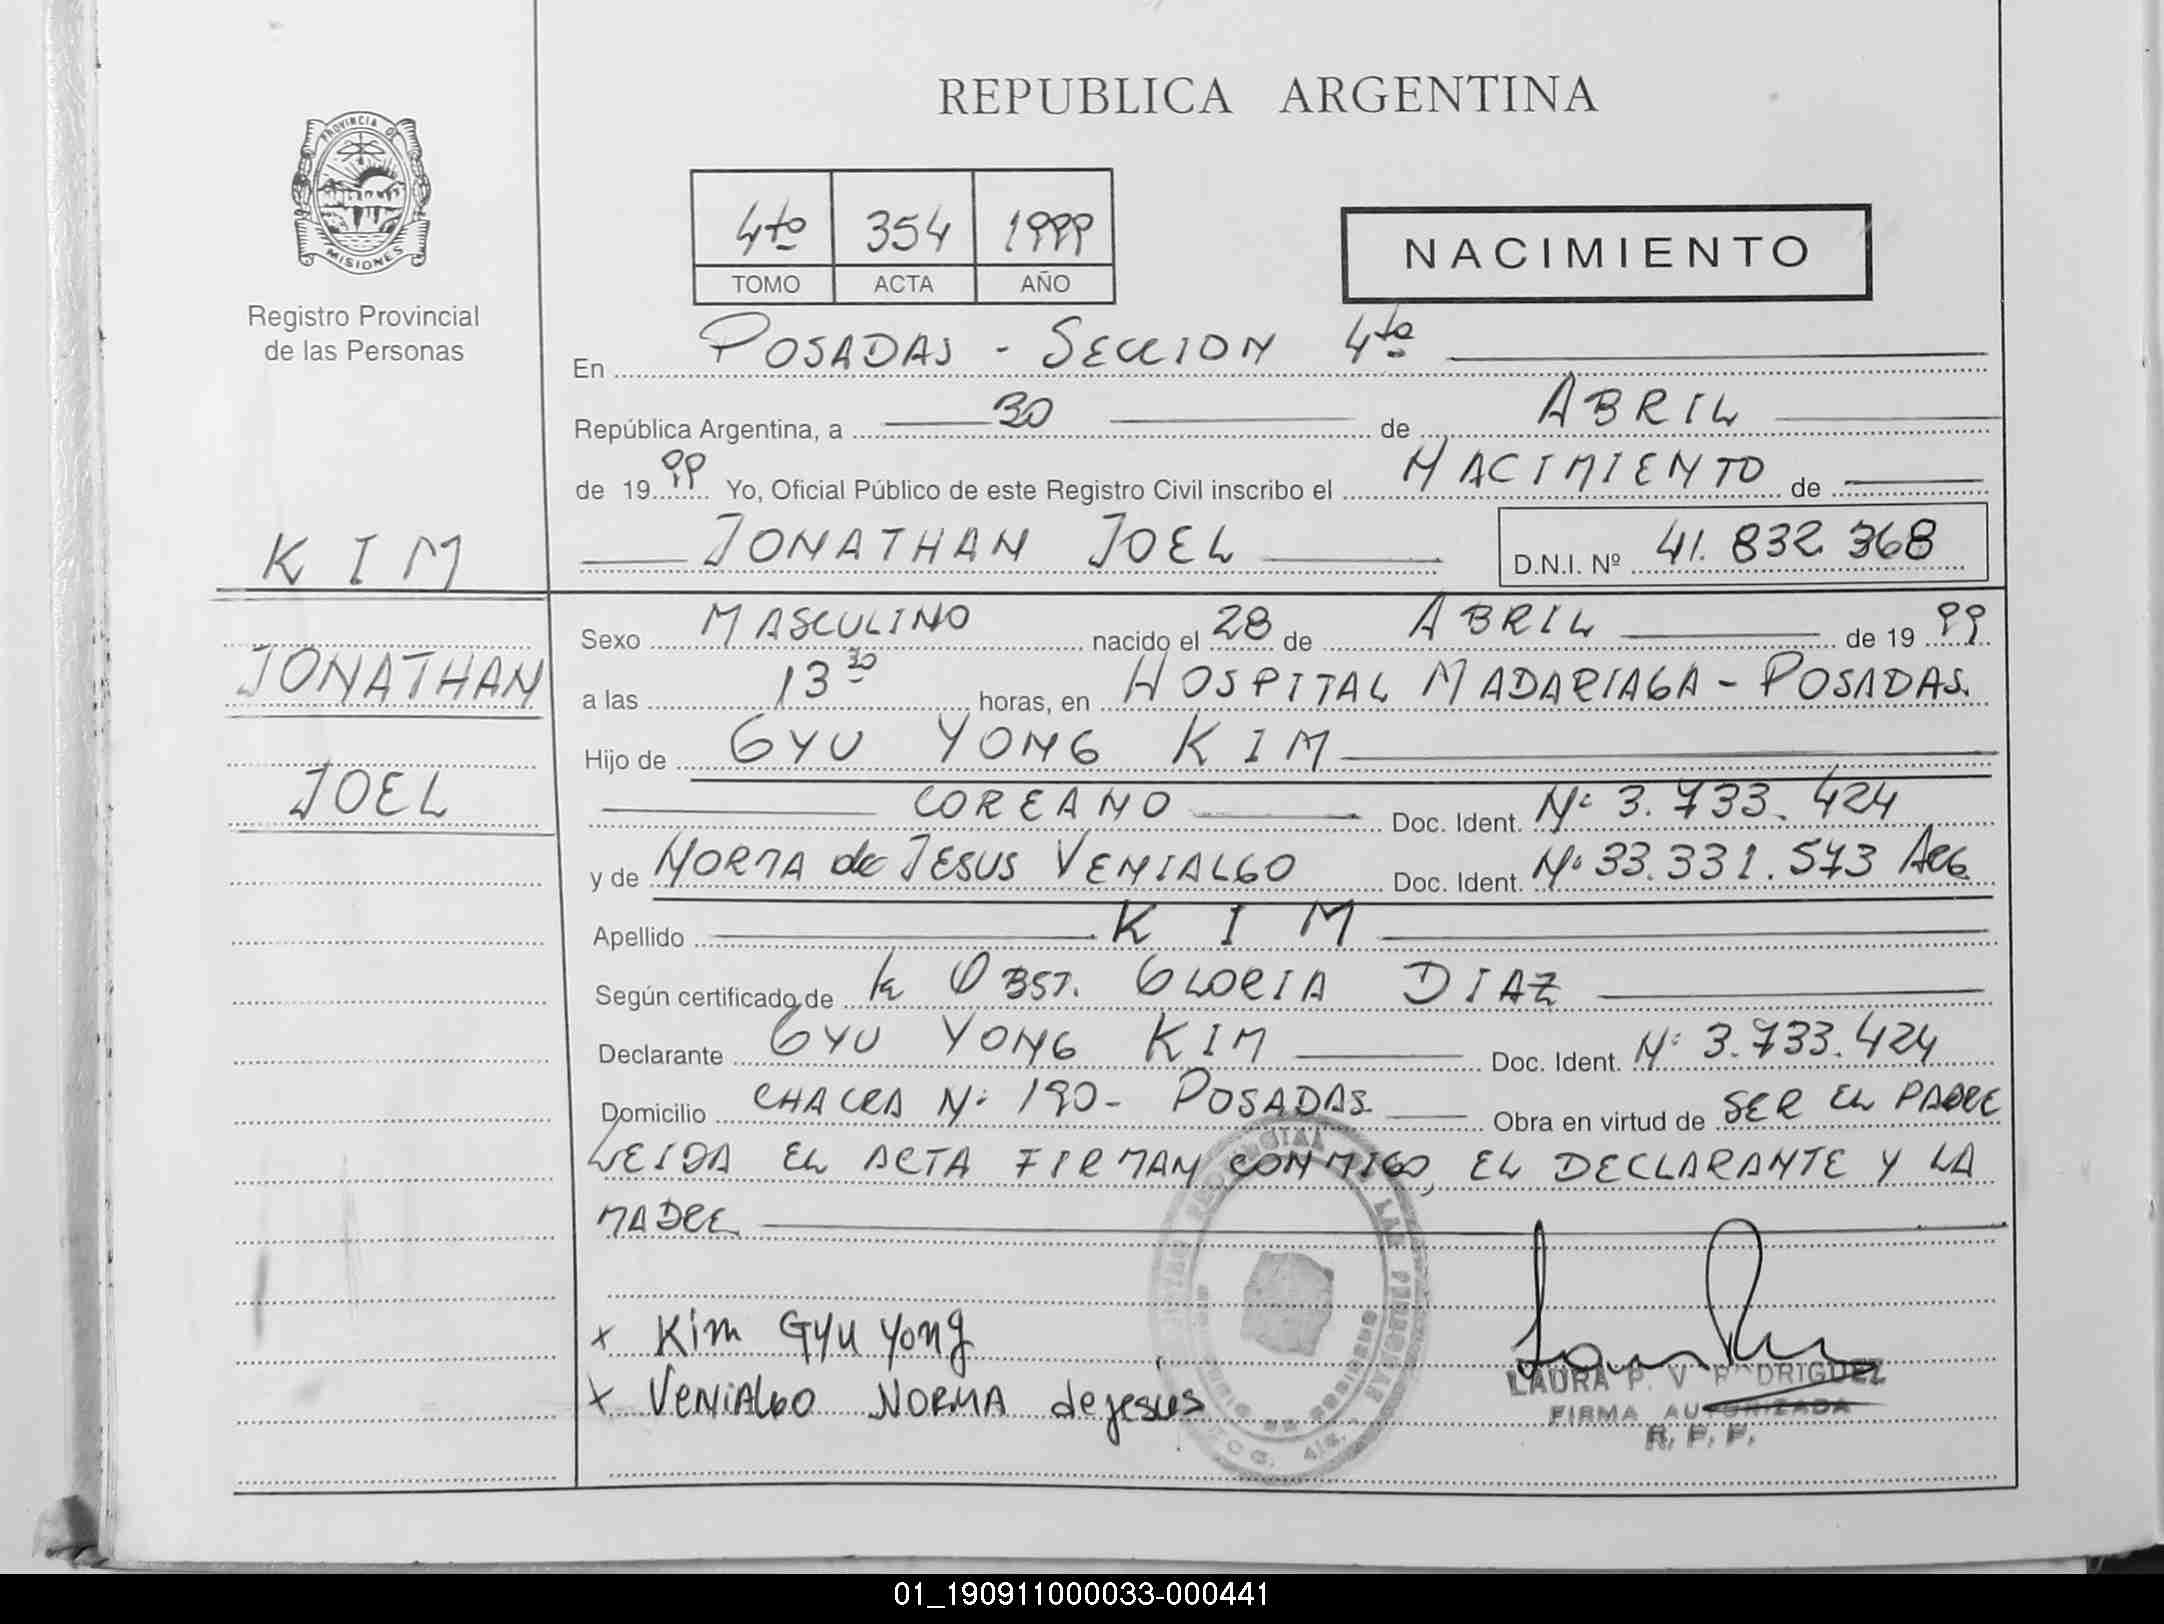 REPUBLICA ARGENTINA
PROVINCIA DE
MISIONES
Registro Provincial
de las Personas
4to 354 1999
TOMO ACTA AÑO
NACIMIENTO
En POSADAS - SECCION 4ta
República Argentina, a 30 de ABRIL
de 1999 Yo, Oficial Público de este Registro Civil inscribo el NACIMIENTO de
JONATHAN JOEL D.N.I. Nº 41.832.368
KIM
JONATHAN
JOEL
Sexo MASCULINO nacido el 28 de ABRIL de 1999
a las 13 30 horas, en HOSPITAL MADARIAGA - POSADAS.
Hijo de GYU YONG KIM
COREANO Doc. Ident. Nº 3.733.424
y de NORMA de JESUS VENIALGO Doc. Ident. Nº 33.331.573 ARG
Apellido KIM
Según certificado de la OBST. GLORIA DIAZ
Declarante GYU YONG KIM Doc. Ident. Nº 3.733.424
Domicilio CHACRA Nº 190- POSADAS Obra en virtud de SER EL PADRE
LEIDA EL ACTA FIRMAN CONMIGO, EL DECLARANTE Y LA
MADRE
x Kim GYU Yong
x VENIALGO NORMA de jesus
LAURA P. V. RODRIGUEZ
FIRMA AUTORIZADA
R. P. P.
01_190911000033-000441